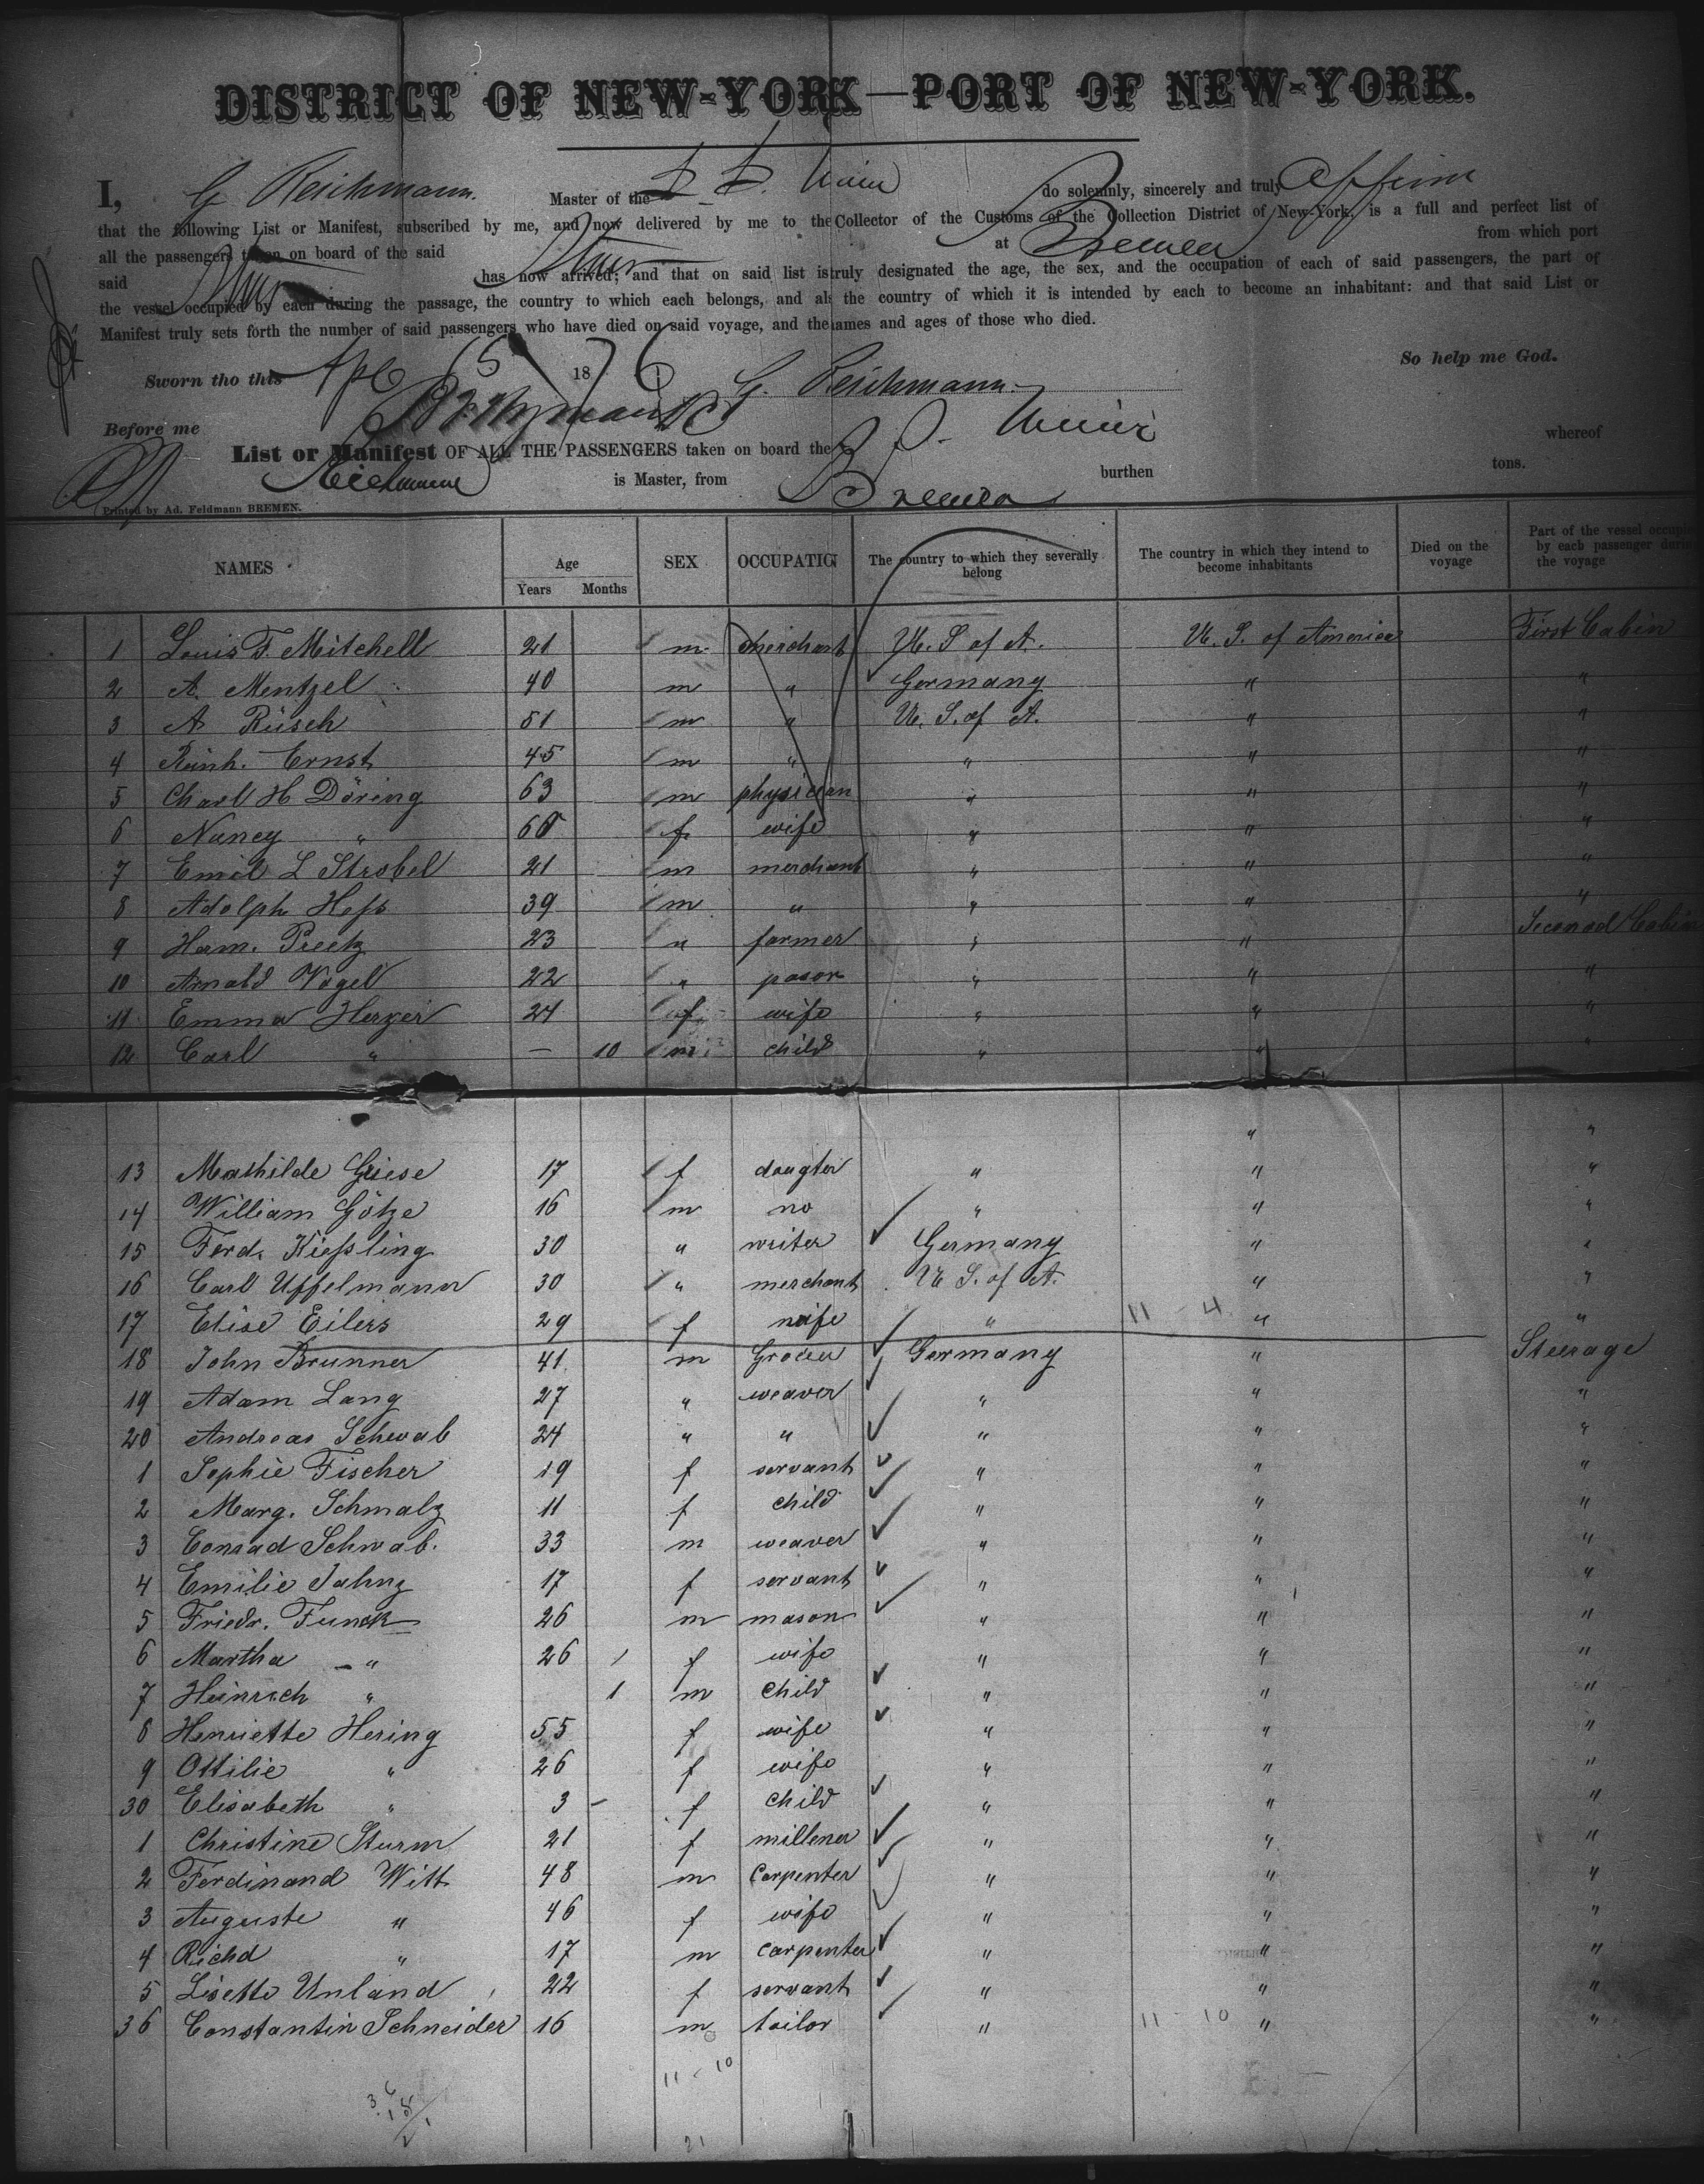 DISTRICT OF NEW-YORK—PORT OF NEW-YORK.
I, G Reichmann. Master of the do solemnly, sincerely and truly affirm
that the following List or Manifest, subscribed by me, and now delivered by me to the Collector of the Customs of the Collection District of New-York, is a full and perfect list of
all the passengers taken on board of the said at Bremen from which port
said has now arrived; and that on said list is truly designated the age, the sex, and the occupation of each of said passengers, the part of
the vessel occupied by each during the passage, the country to which each belongs, and als the country of which it is intended by each to become an inhabitant: and that said List or
Manifest truly sets forth the number of said passengers who have died on said voyage, and the ames and ages of those who died.
So help me God.
Sworn tho this Apl 15 1876 G. Reichmann.
Before me
List or Manifest OF ALL THE PASSENGERS taken on board the whereof
Reichmann is Master, from Bremen burthen tons.
Printed by Ad. Feldmann BREMEN.
NAMES Age Years Months SEX OCCUPATIO The country to which they severally belong The country in which they intend to become inhabitants Died on the voyage Part of the vessel occupied by each passenger during the voyage
1 Louis F. Mitchell 21 m merchant U. S of A. U. S. of America First Cabin
2 A. Mentzel 40 m " Germany " "
3 A Rüsch 51 m " U. S. of A. " "
4 Reinh. Ernst 45 m " " " "
5 Charl H Döring 63 m physician " " "
6 Nancy " 60 f wife " " "
7 Emil L Strobel 21 m merchant " " "
8 Adolph Hefs 39 m " " " "
9 Herm. Preetz 23 " farmer " " Second Cabin
10 Arnold Vogel 22 " pasor " " "
11 Emma Herzer 24 f wife " " "
12 Carl " — 10 m child " " "
" "
13 Mathilde Giese 17 f daugter " " "
14 William Götze 16 m no " " "
15 Ferd. Kiefsling 30 " writer Germany " "
16 Carl Uffelmann 30 " merchant U. S. of A. " "
17 Elise Eilers 29 f wife " 11 4 " "
18 John Brunner 41 m Grocer Germany " Steerage
19 Adam Lang 27 " weaver " " "
20 Andreas Schwab 24 " " " " "
1 Sophie Fischer 19 f servant " " "
2 Marg. Schmalz 11 f child " " "
3 Conrad Schwab. 33 m weaver " " "
4 Emilie Jahnz 17 f servant " " "
5 Friedr. Funck 26 m mason " " "
6 Martha " 26 f wife " " "
7 Heinrich " 1 m child " " "
8 Henriette Hering 55 f wife " " "
9 Ottilie " 26 f wife " " "
30 Elisabeth " 3 - f child " " "
1 Christine Sturm 21 f millener " " "
2 Ferdinand Witt 48 m Carpenter " " "
3 Auguste " 46 f wife " " "
4 Richd " 17 m carpenter " " "
5 Lisette Unland 22 f servant " " "
36 Constantin Schneider 16 m tailor " 11 10 " "
11 - 10
21